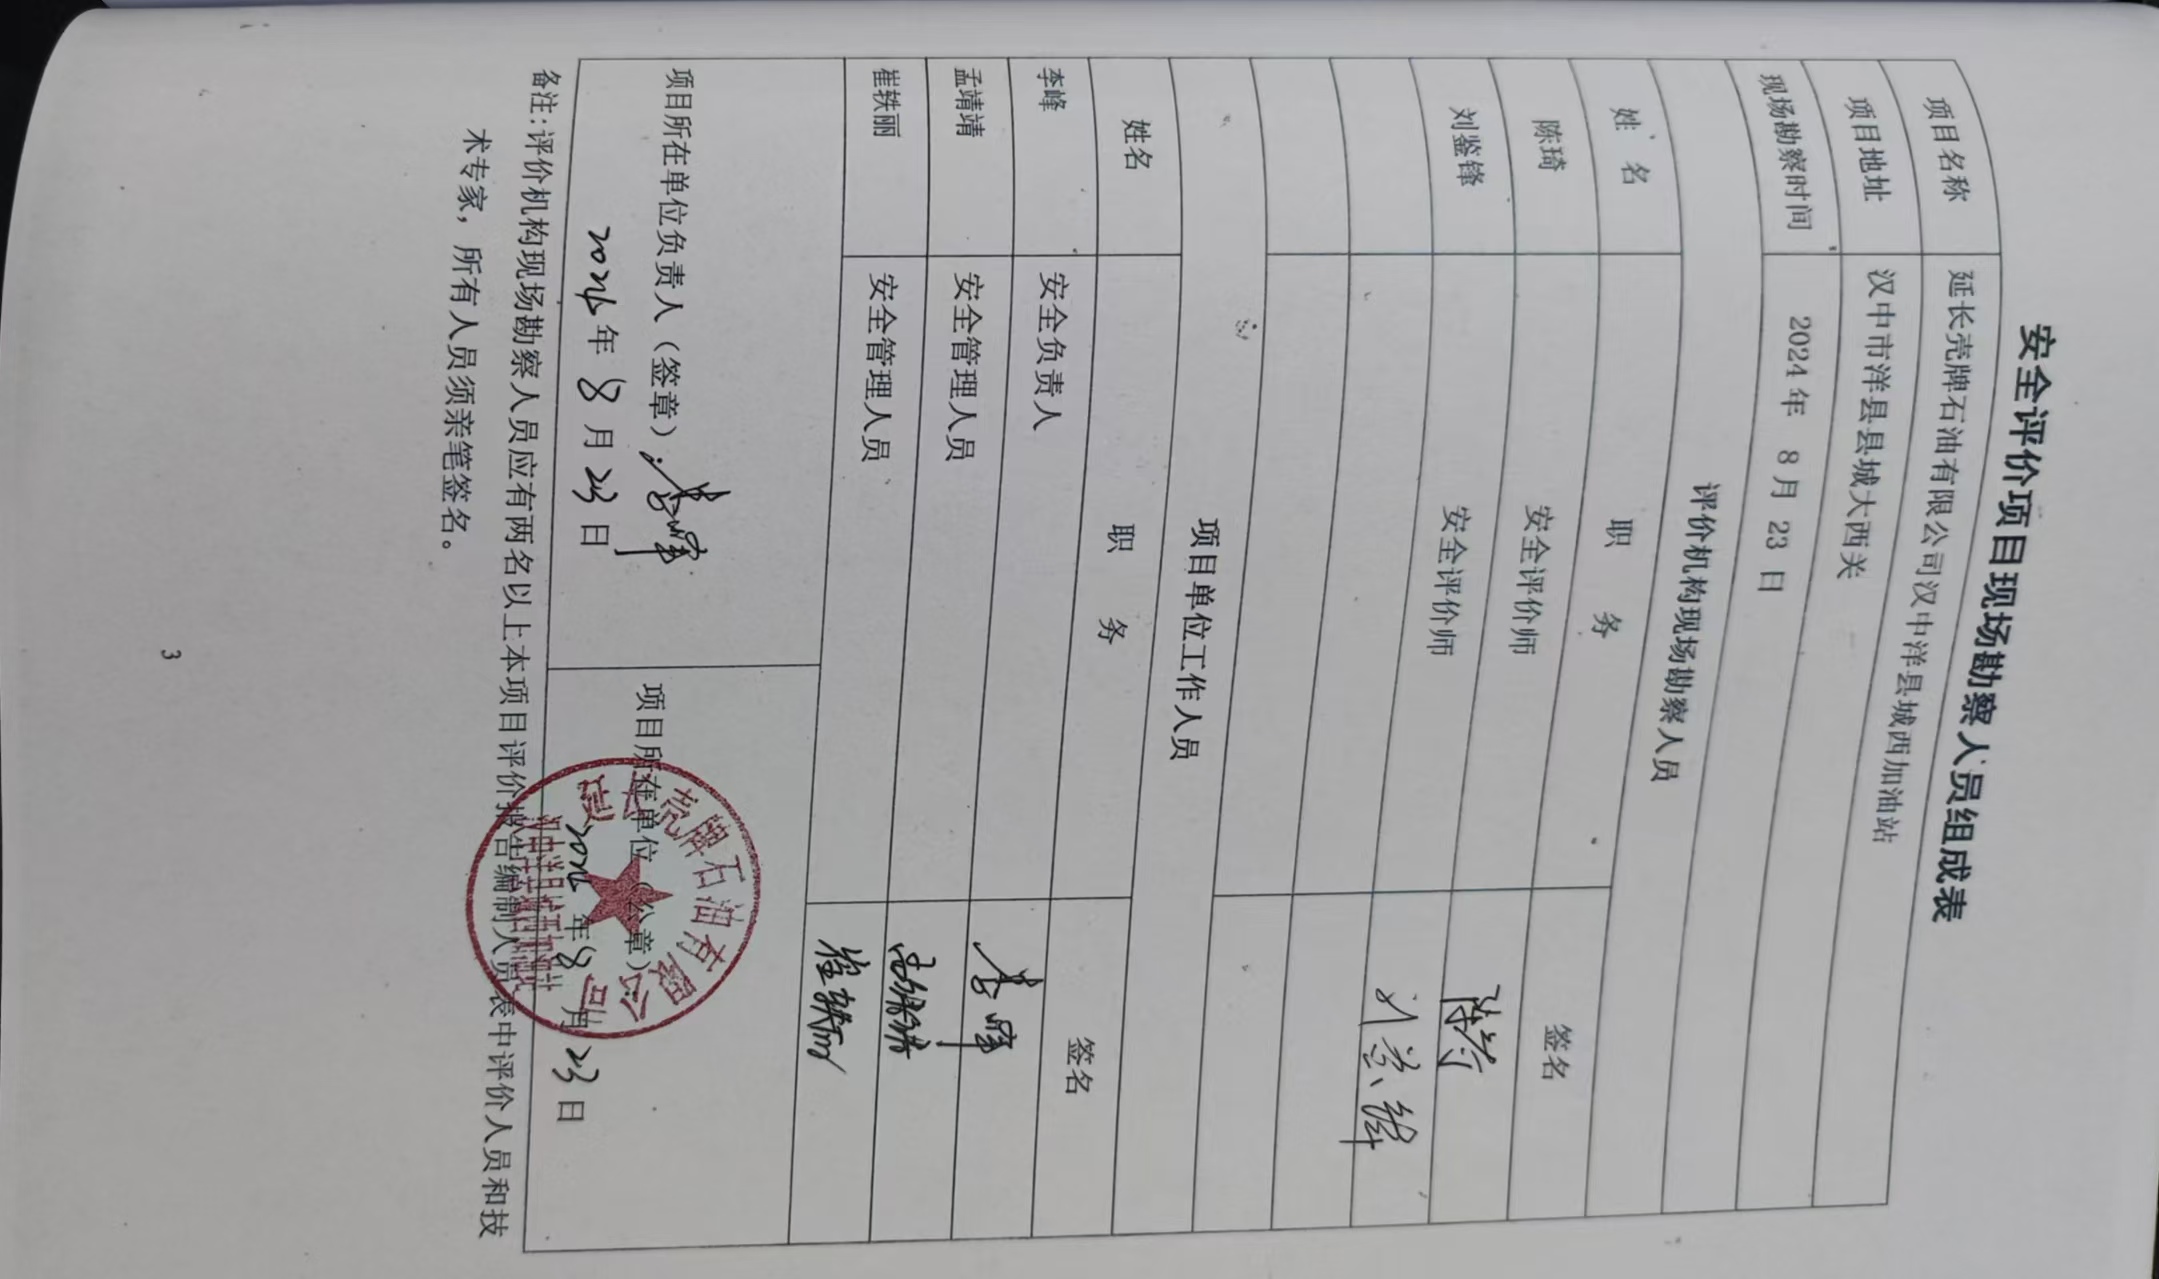 安全评价项目现场勘察人员组成表
项目名称 延长壳牌石油有限公司汉中洋县城西加油站
项目地址 汉中市洋县县城大西关
现场勘察时间 2024年 8月 23 日
评价机构现场勘察人员
姓 名 职 务 签名
陈琦 安全评价师 陈琦
刘鉴锋 安全评价师 刘鉴锋
项目单位工作人员
姓名 职 务 签名
李峰 安全负责人 李峰
孟靖靖 安全管理人员 孟靖靖
崔轶丽 安全管理人员 崔轶丽
项目所在单位负责人（签章）：李峰
2024年8月23日
项目所在单位（公章）
2024年8月23日
延长壳牌石油有限公司
备注：评价机构现场勘察人员应有两名以上本项目评价报告编制人员表中评价人员和技
术专家，所有人员须亲笔签名。
3